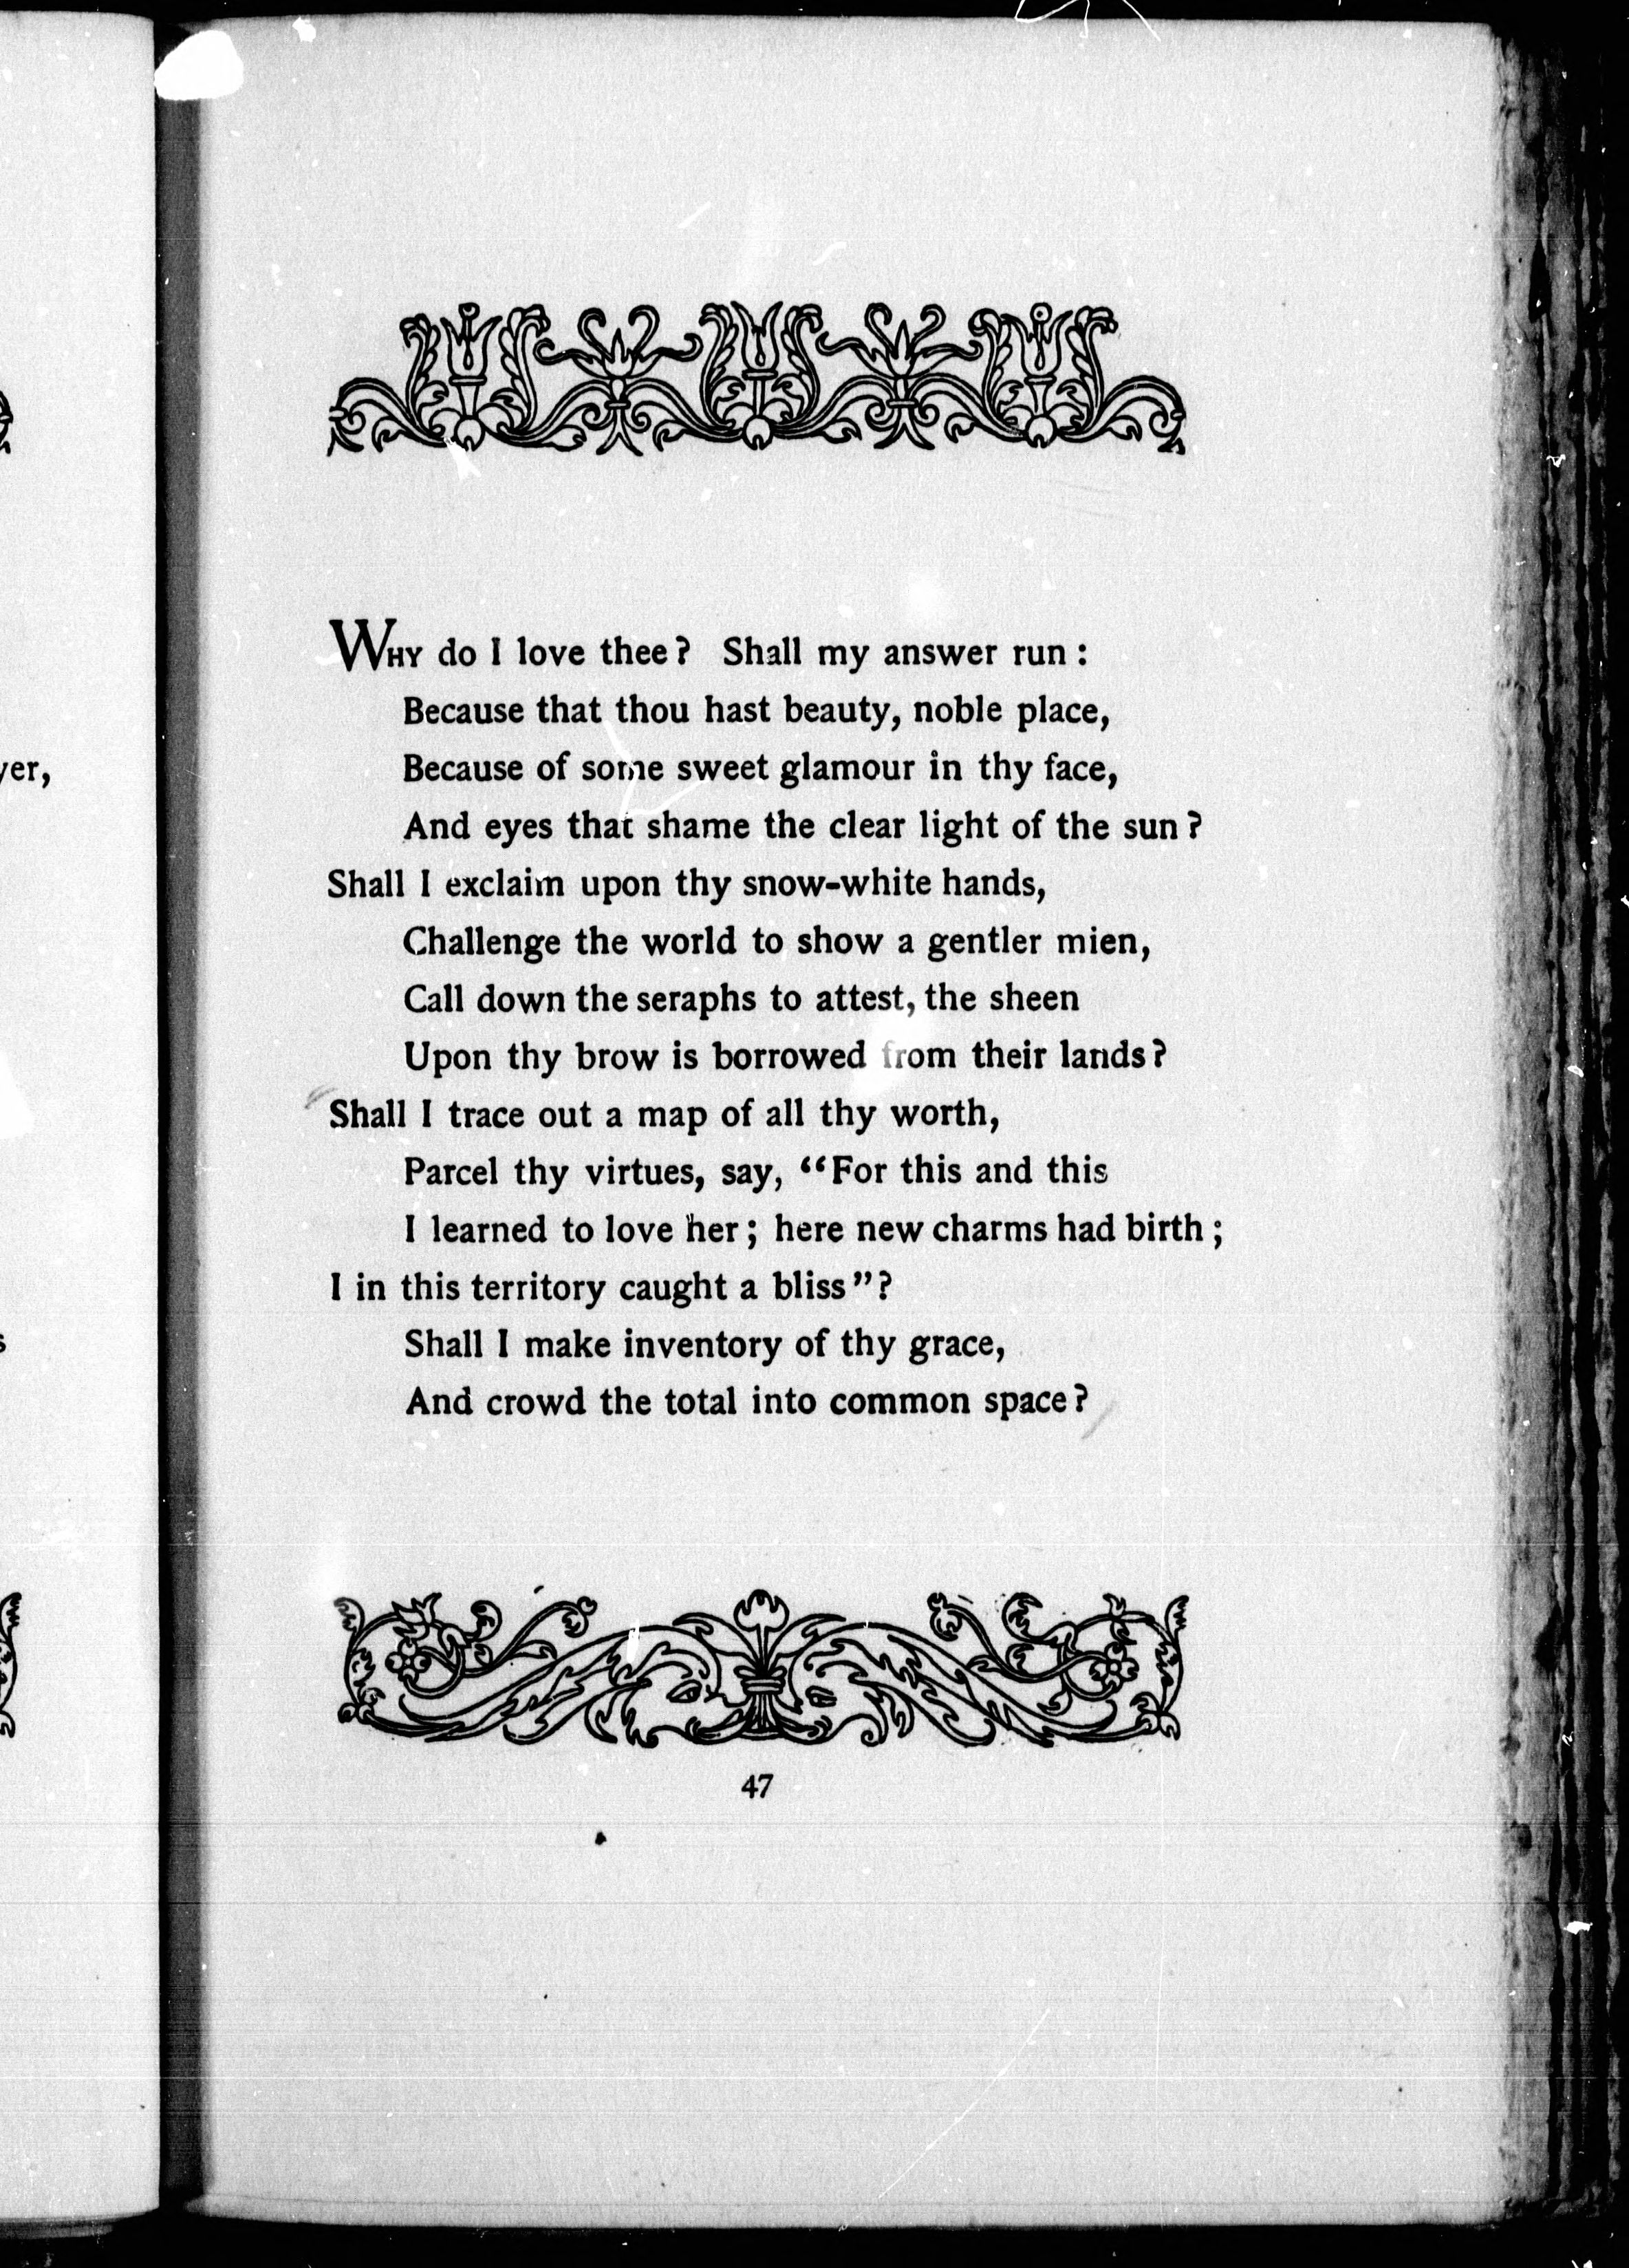 yer,
s
WHY do I love thee? Shall my answer run:
Because that thou hast beauty, noble place,
Because of some sweet glamour in thy face,
And eyes that shame the clear light of the sun?
Shall I exclaim upon thy snow-white hands,
Challenge the world to show a gentler mien,
Call down the seraphs to attest, the sheen
Upon thy brow is borrowed from their lands?
Shall I trace out a map of all thy worth,
Parcel thy virtues, say, “For this and this
I learned to love her; here new charms had birth;
I in this territory caught a bliss”?
Shall I make inventory of thy grace,
And crowd the total into common space?
47